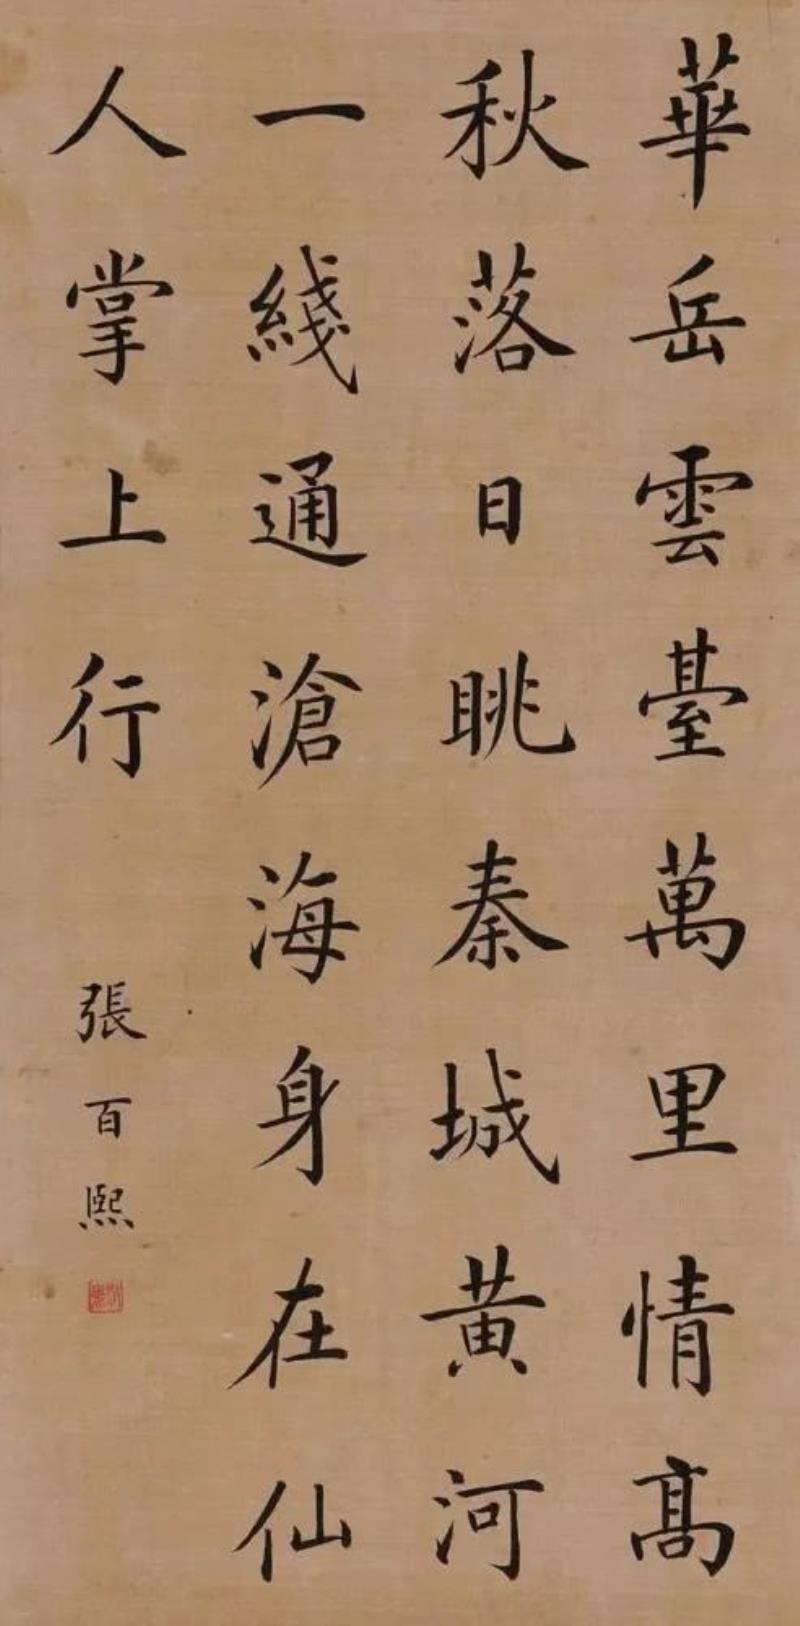 華岳雲臺萬里情高
秋落日眺秦城黄河
一綫通滄海身在仙
人掌上行
張百熙